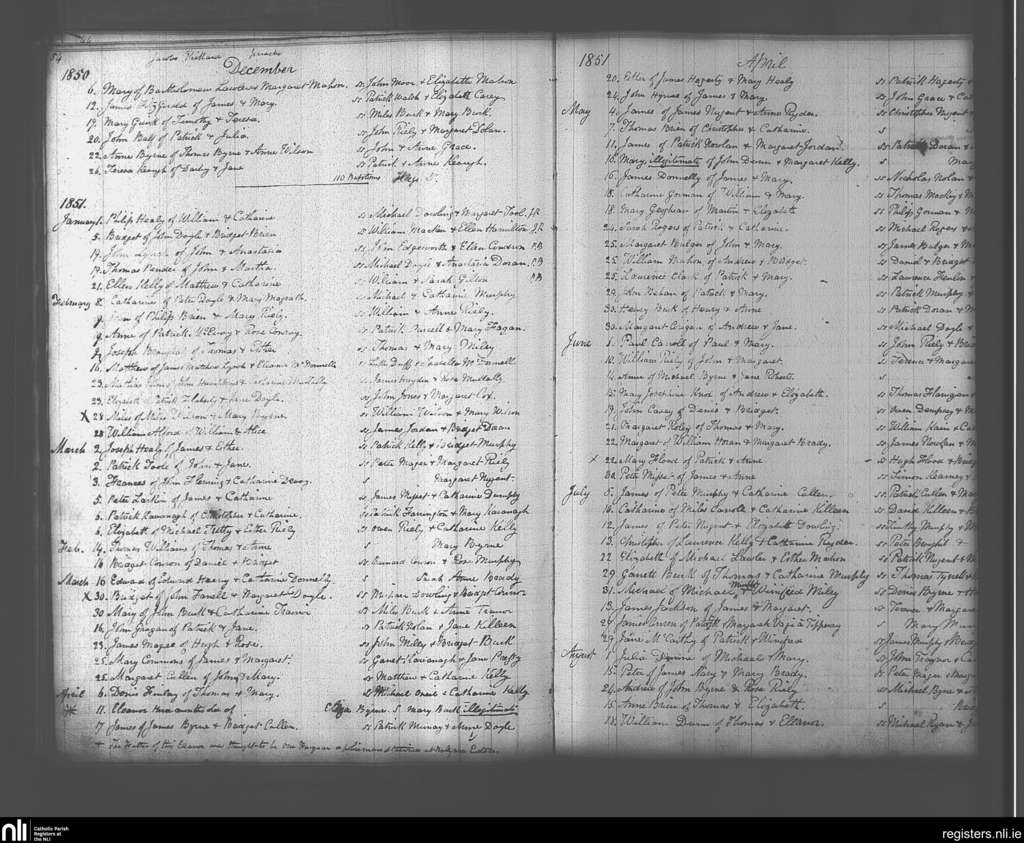 54
James Kirwan
1850 December
6. Mary of Bartholomew Lawler & Margaret Mahon. ss John Moor & Elizabeth Mahon
12. James Fitzgerald of James & Mary. ss Patrick Walsh & Elizabeth Carey
19. Mary Quirk of Timothy & Teresa. ss Miles Burk & Mary Burk.
20. John Ball of Patrick & Julia. ss John Riely & Margaret Dolan.
22. Anne Byrne of Thomas Byrne & Anne Wilson ss John & Anne Grace.
26. Teresa Keogh of Darby & Jane ss Patrick & Anne Keargh.
110 Baptisms
1851.
January 1. Philip Healy of William & Catharine ss Michael Dowling & Margaret Tool. J.R
5. Bridget of John Doyle & Bridget Brien ss William Mackin & Ellen Hamilton J.R
19. John Lynch of John & Anastatia ss John Edgeworth & Ellen Condron P.B
19. Thomas Pender of John & Martha. ss Michael Doyle & Anastatia Doran. P.B
21. Ellen Kelly of Matthew & Catharine ss William & Sarah P.B
February 2. Catharine of Peter Doyle & Mary Magrath. ss Michael & Catharine Murphy
9 of Philip Brien & Mary Riely. ss William & Anne Riely.
9 Anne of Patrick McEvoy & Rose Conroy. ss Patrick Farrell & Mary Fagan.
9 Joseph of Thomas & Esther ss Thomas & Mary Miley
16. Matthew of James Matthew Lynch & Eleanor McDonnell ss Luke Duffy & McDonnell
23. of John & Catharine ss James Hayden & Rose
23. Elizabeth of Patrick & Anne Doyle. ss John Jones & Margaret Cox.
X 28 Miles of Miles Wilson & Mary Byrne. ss William Wilson & Mary Wilson
28 William Alford of William & Alice ss James & Bridget
March 2. Joseph Healy of James & Esther. ss Patrick Kelly & Bridget Murphy
2. Patrick Toole of John & Jane. ss Peter Magee & Margaret Riely
3. Frances of John Fleming & Catharine s Margaret Nugent.
5. Peter Larkin of James & Catharine ss James Misset & Catharine Dunphy
6. Patrick Kavanagh of Christopher & Catharine. ss Patrick Farrington & Mary Kavanagh
6. Elizabeth of Michael & Esther Riely ss Owen Riely & Catharine Kelly
Feb. 14. Thomas Williams of Thomas & Anne s Mary Byrne
16 Bridget Conron of Daniel & Bridget ss Conron & Rose Murphy
March 16 Edward of Edward Henry & Catharine Donnelly s Sarah Anne Brady
X 30 Bridget of John Farrell & Margaret Doyle. ss Michael Dowling & Bridget Connor
30 Mary of John Burk & Catharine Trenor ss Miles Burk & Anne Trenor
16. John of Patrick & Jane. ss Patrick Dolan & Jane Killeen
23. James Magee of Hugh & Rose. ss John Miley & Bridget Burk
25. Mary Commons of James & Margaret. ss Garret Kavanagh & Jane
25. Margaret Cullen of John & Mary. ss Matthew & Catharine Kelly
April 6. Denis Hanley of Thomas & Mary. ss Michael & Catharine Kelly
11. Eleanor of Eliza Byrne. S. Mary Burk illegitimate
17 James of James Byrne & Bridget Cullen. ss Patrick Murray & Anne Doyle
The Father of this Eleanor was thought to be One
1851 April
20. Esther of James Hagerty & Mary Healy ss Patrick Hagerty &
24. John Hynes of James & Mary. ss John Grace &
May 4. James of James Nugent & Anne Ryder. ss Christopher Nugent
7. Thomas Brien of Christopher & Catharine. s
11. James of Patrick Nowlan & Margaret Jordan. ss Patrick Doran &
15. Mary, illegitimate of John Dunn & Margaret Kelly. s Mar
16. James Donnelly of James & Mary. ss Nicholas Nolan &
18. Catharine Gorman of William & Mary. ss Thomas Mackey &
18. Mary Geoghean of Martin & Elizabeth ss Philip Gorman & M
24. Sarah Rogers of Patrick & Catharine. ss Michael Rogers &
25. Margaret Bulger of John & Mary. ss James Bulger &
25. William Mahon of Andrew & Bridget. ss Daniel & Bridget
25. Laurence Clark of Patrick & Mary. ss Laurence Henlon &
29. John of Patrick & Mary. ss Patrick Murphy &
30. Henry Burk of Henry & Anne ss Patrick Doran &
30. Margaret Corigan of Andrew & Jane. ss Michael Doyle &
June 1. Paul Carroll of Paul & Mary. ss John Riely &
10. William Riely of John & Margaret. ss Terence & Margaret
14. Anne of Michael Byrne & Jane Roberts. s
15. Mary Josephine Knox of Andrew & Elizabeth. ss Thomas Flanigan
19. John Casey of Denis & Bridget. ss Owen Dempsey &
21. Margaret Roley of Thomas & Mary. ss William Kain &
22. Margaret of William Horan & Margaret Brady. ss James Nowlan &
x 22. Mary Flood of Patrick & Anne ss Hugh Flood &
30. Peter Misset of James & Anne ss Simon Kearney &
July 5. James of Peter Murphy & Catharine Cullen. ss Patrick Cullen &
10. Catharine of Miles Carroll & Catharine Killeen ss David Killeen &
12. James of Peter Nugent & Elizabeth Dowling. ss Timothy Murphy &
13. Christopher of Laurence Kelly & Catharine Ryder. ss Peter &
22 Elizabeth of Michael Lawler & Esther Mahon ss Patrick Nugent &
29. Garrett Burk of Thomas & Catharine Murphy ss Thomas Tyrrell &
31. Michael of Michael & Winifred Miley ss Denis Byrne &
13. James Jackson of James & Margaret. ss Terence & Margaret
27 James of Patrick & Margaret s Mary
29. Jane McCarthy of Patrick & Winifred ss James Murphy &
August 1. Julia of Michael & Mary. ss John Traynor &
15. Peter of James Kacy & Mary Brady. ss Peter Magee &
24. Andrew of John Byrne & Rose Riely ss Michael Byrne &
15. Anne Brien of Thomas & Elizabeth. s
18. William Dunn of Thomas & Eleanor. ss Michael Ryan &
nli Catholic Parish Registers at the NLI
registers.nli.ie